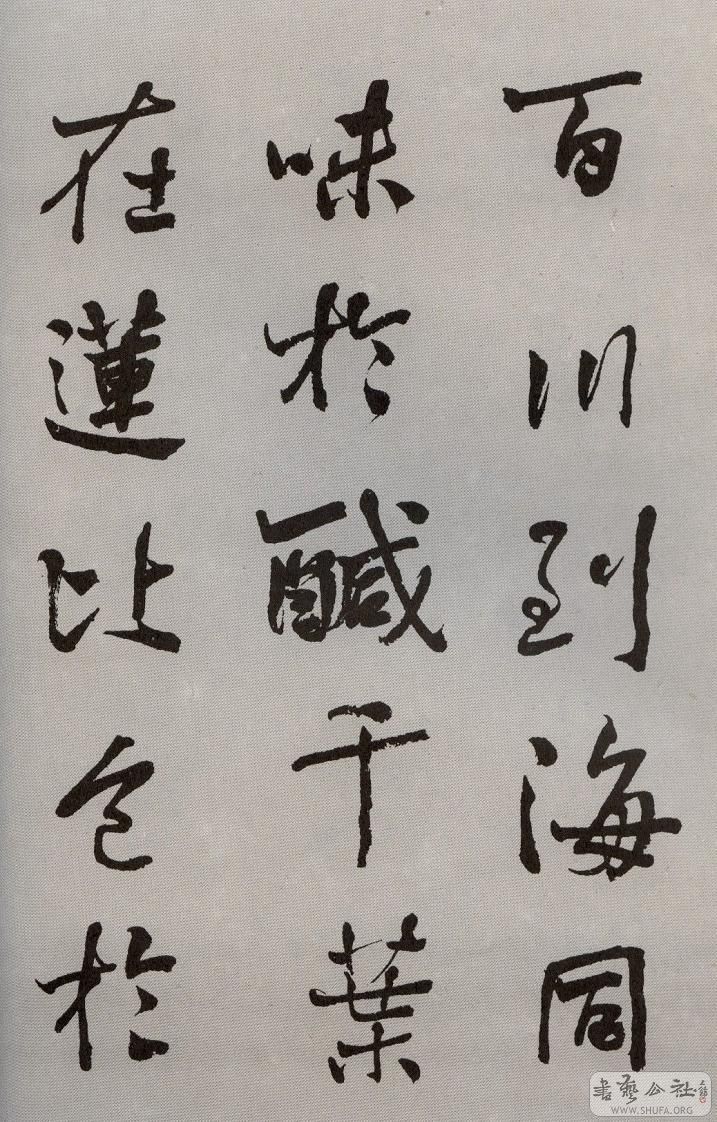 百川到海同
味於鹹千葉
在蓮比色於
書藝公社
WWW.SHUFA.ORG